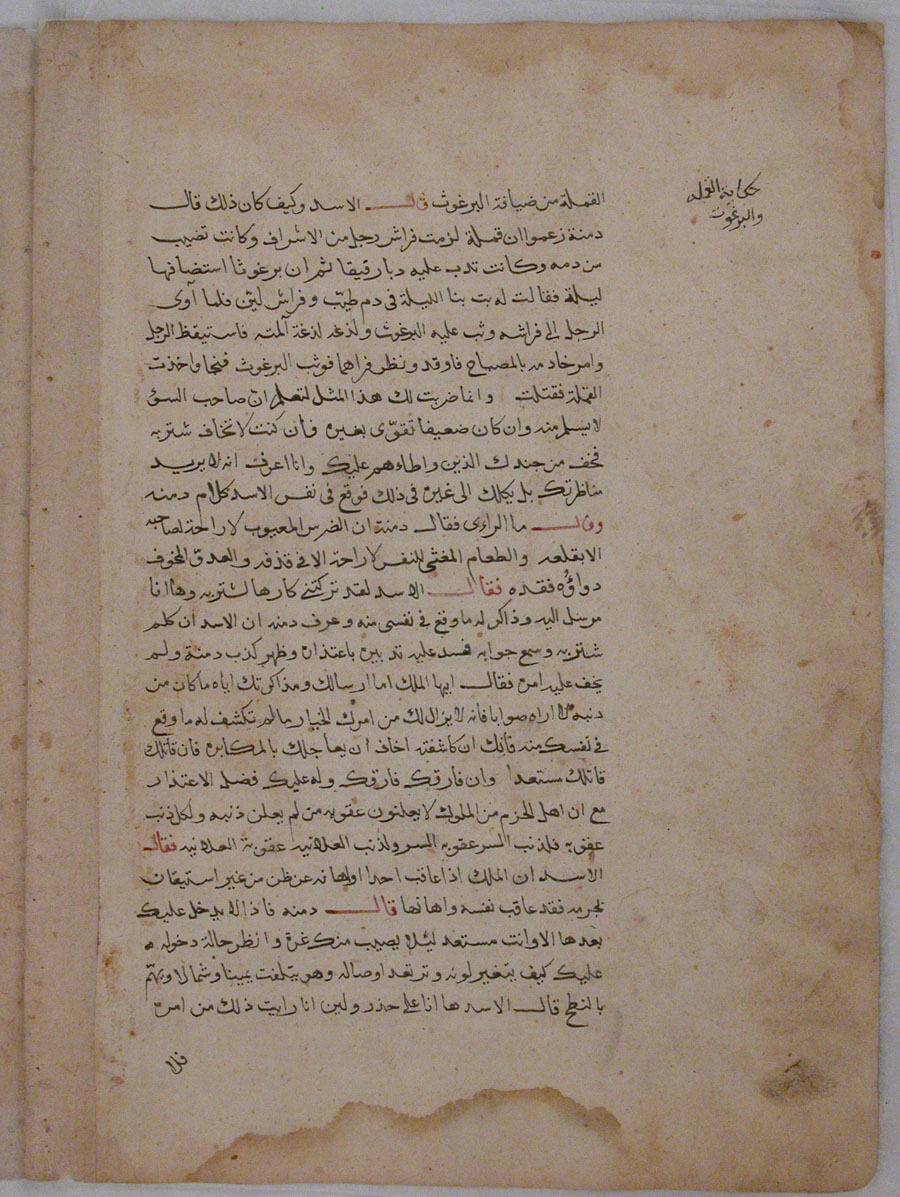 حكاية القملة
والبرغوث
القملة من ضيافة البرغوث قال الاسد وكيف كان ذلك قال
دمنة زعموا ان قملة لزمت فراش رجل من الاشراف وكانت تصيب
من دمه وكانت تدب عليه دبا رقيقا ثم ان برغوثا استضافها
ليلة فقالت له بت بنا الليلة في دم طيب وفراش لين فلما آوى
الرجل الى فراشه وثب عليه البرغوث ولدغه لدغة آلمته فاستيقظ الرجل
وامر خادمه بالمصباح فاوقد ونظر فراهما فوثب البرغوث فنجا واخذت
القملة فقتلت وانما ضربت لك هذا المثل لتعلم ان صاحب السوء
لا يسلم منه وان كان ضعيفا تقوى بغيره فان كنت لا تخاف شتربه
فخف من جندك الذين واطاءهم عليك وانا اعرف انه لا يريد
مناظرتك بل يكلك الى غيره في ذلك فوقع في نفس الاسد كلام دمنه
وقال ما الراي فقال دمنة ان الضرس المعيوب لا راحة لصاحبه
الا بقلعه والطعام المغثي للنفس لا راحة الا في قذفه والعدو المخوف
دواؤه فقده فقال الاسد لقد تركتني كارها لشتربه وها انا
مرسل اليه وذاكر له ما وقع في نفسي منه وعرف دمنه ان الاسد ان كلم
شتربه وسمع جوابه فسد عليه تدبيره باعتذاره وظهر كذب دمنة ولم
يخف عليه امره فقال ايها الملك اما ارسالك ومذاكرتك اياه ما كان من
ذنبه لا اراه صوابا فانه لا يزال لك من امرك الخيار ما لم تكشف له ما وقع
في نفسك منه فانك ان كاشفته اخاف ان يعاجلك بالمكابره فان قاتلك
قاتلك مستعدا وان فارقك فارقك وله عليك فضل الاعتذار
مع ان اهل الحزم من الملوك لا يعلنون عقوبه من لم يعلن ذنبه ولكل ذنب
عقوبه فلذنب السر عقوبه السر ولذنب العلانيه عقوبة العلانيه فقال
الاسد ان الملك اذا عاقب احدا او اهانه عن ظن من غير استيقان
بجرمه فقد عاقب نفسه واهانها قال دمنه فاذا لا يدخل عليك
بعدها الا وانت مستعد ليلا يصيب منك غرة وانظر حالة دخوله
عليك كيف يتغير لونه وترتعد اوصاله وهو يتلفت يمينا وشمالا ويهم
بالنطح قال الاسد ها انا على حذر ولين انا رايت ذلك من امره
فلا